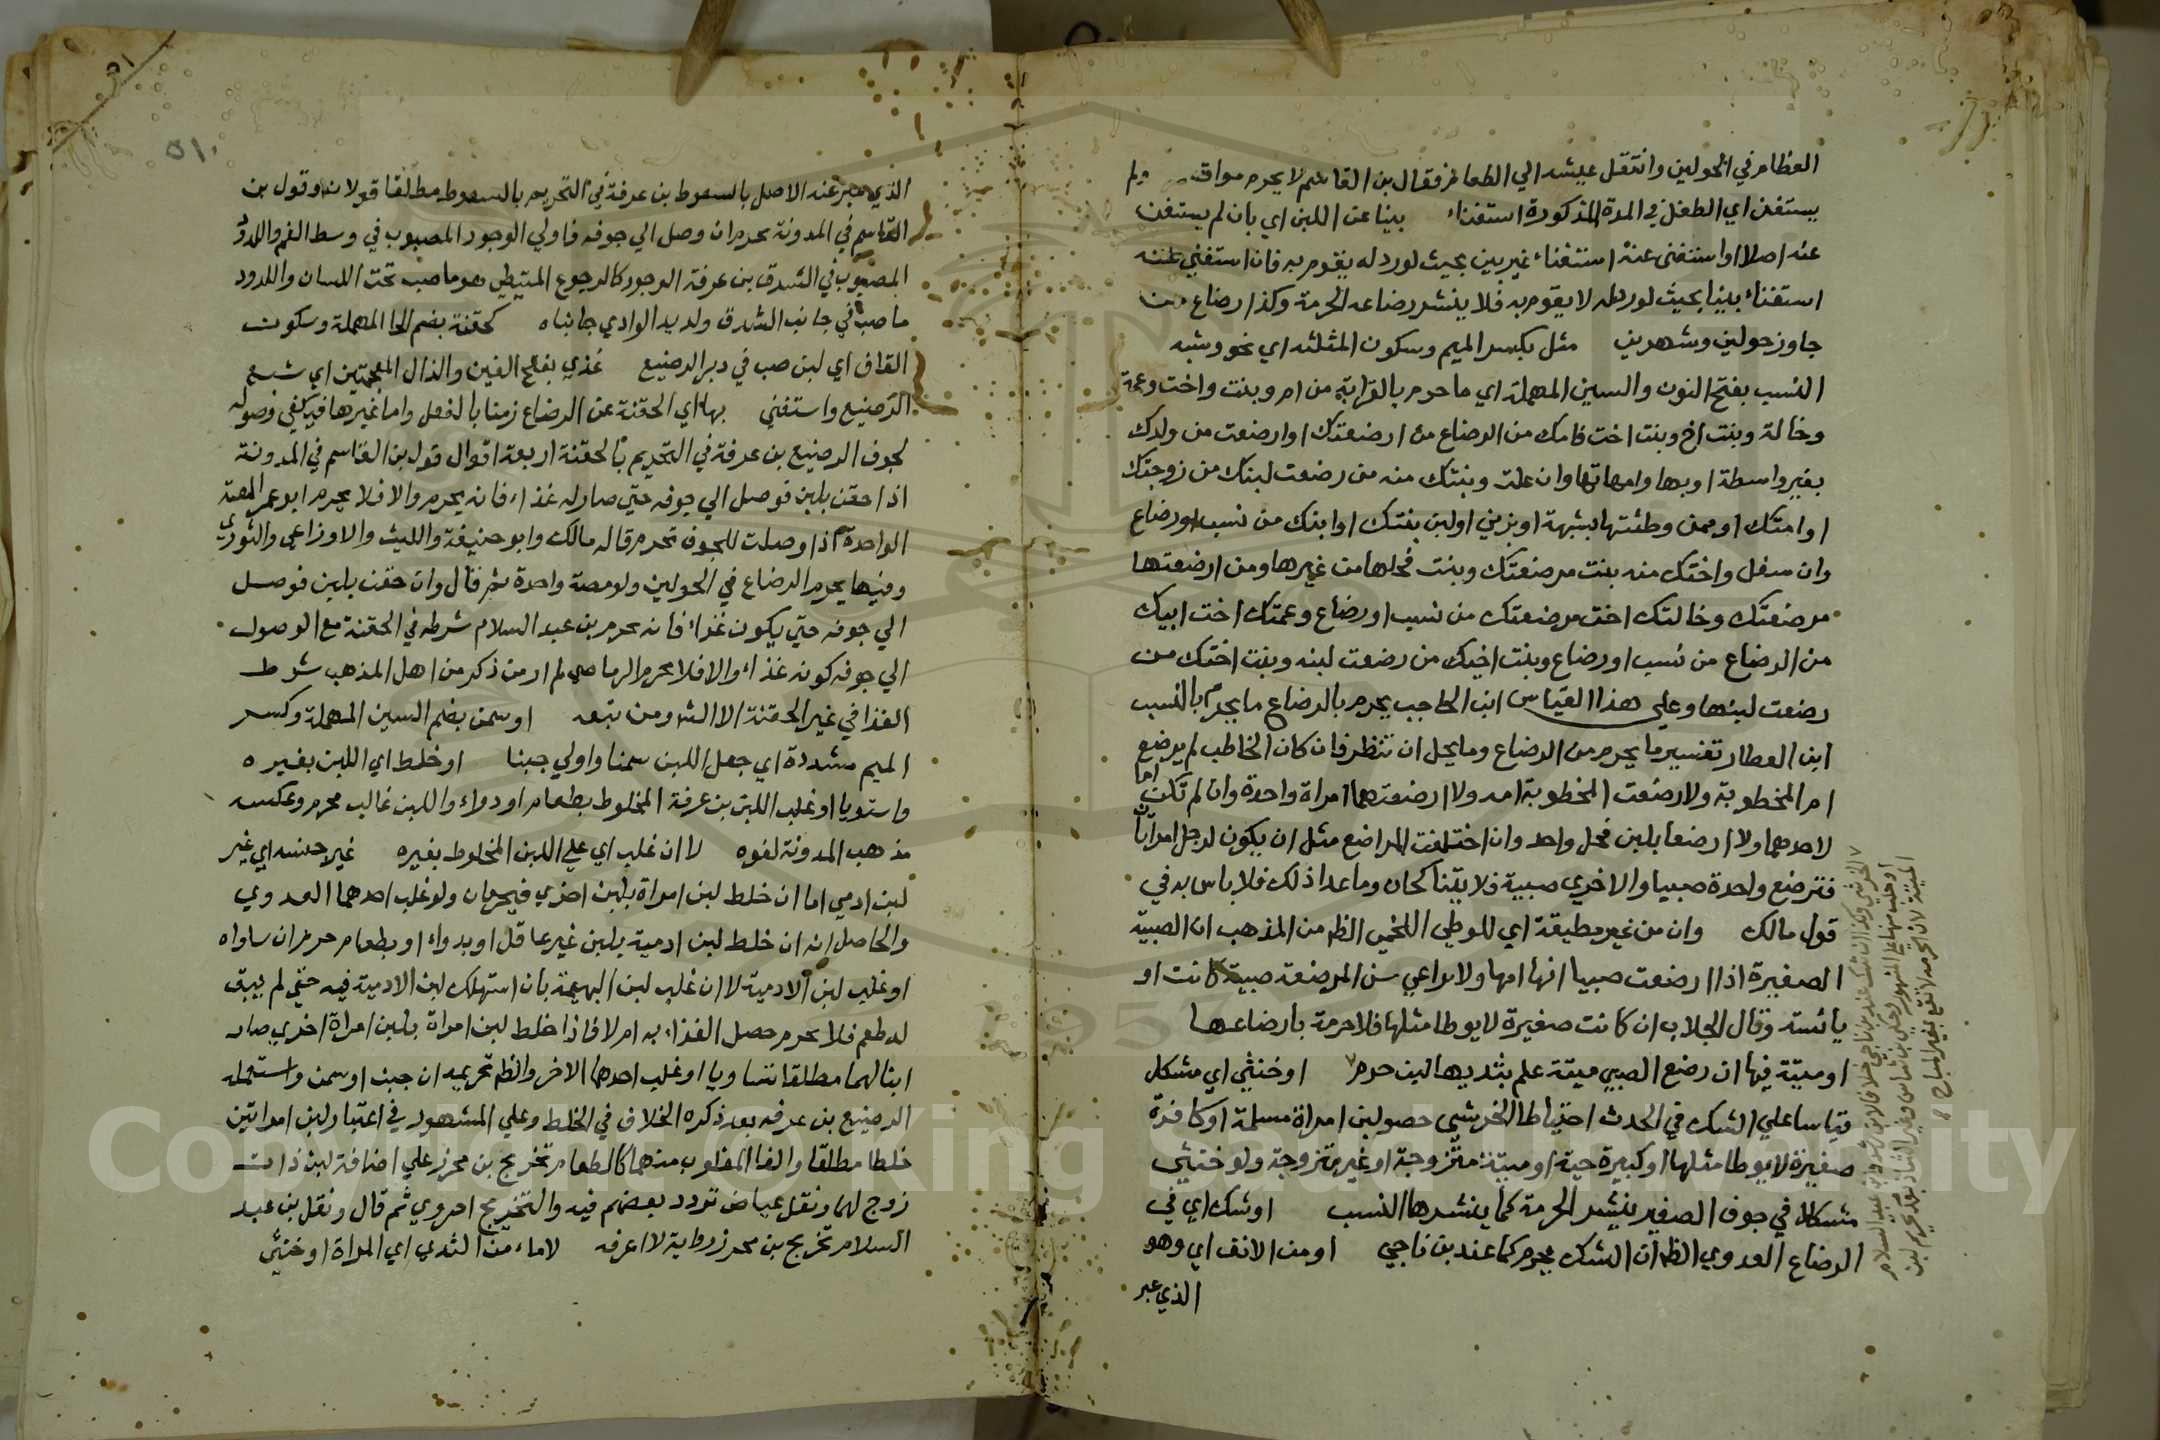 العظام في الحولين وانتقل عيشه الي الطعام فقال بن القاسم لا يحرم ولم
يستغن اي الطفل في المدة المذكورة استغناء بينا عن اللبن اي بان لم يستغن
عنه اصلا او استغنى عنه استغناء غير بين بحيث لو رد له يقوم به فان استغني عنه
استغناء بينا بحيث لو رد له لا يقوم به فلا ينشر رضاعه الحرمة وكذا رضاع من
جاوز حولين وشهرين مثل بكسر الميم وسكون المثلثه اي نحو وشبه
النسب بفتح النون والسين المهملة اي ما حرم بالقرابة من ام وبنت واخت وعمة
وخالة وبنت اخ وبنت اخت فامك من الرضاع من ارضعتك او ارضعت من ولدك
بغير واسطة او بها وامهاتها وان علت وبنتك منه من رضعت لبنك من زوجتك
او امتك او ممن وطئتها بشبهة او بزني او لبن بنتك او ابنك من نسب او رضاع
وان سفل واختك منه بنت مرضعتك وبنت فحلها من غيرها ومن ارضعتها
مرضعتك وخالتك اخت مرضعتك من نسب او رضاع وعمتك اخت ابيك
من الرضاع من نسب او رضاع وبنت اخيك من رضعت لبنه وبنت اختك من
رضعت لبنها وعلي هذا القياس ابن الحاجب يحرم بالرضاع ما يحرم بالنسب
ابن العطار تفسير ما يحرم من الرضاع وما يحل ان تنظر فان كان الخاطب لم يرضع
ام المخطوبة ولا رضعت المخطوبة امه ولا ارضعتهما امراة واحدة وان لم تكن اما
لاحدهما ولا ارضعا بلبن فحل واحد وان اختلفت المراضع مثل ان يكون لرجل امراتان
فترضع واحدة صبيا والاخري صبية فلا يتناكحان وما عدا ذلك فلا باس به في
قول مالك وان من غير مطيقة اي للوطي اللخمي الظ من المذهب ان الصبية
الصغيرة اذا ارضعت صبيا انها امها ولا يراعي سن المرضعة صبية كانت او
يائسة وقال الجلاب ان كانت صغيرة لا يوطا مثلها فلا حرمة بارضاعها
او ميتة فيها ان رضع الصبي ميتة علم بثديها لبن حرم او خنثي اي مشكل
قياسا علي الشك في الحدث احتياطا الخرشي حصول لبن امراة مسلمة او كافرة
صغيرة لا يوطا مثلها او كبيرة حية او ميتة متزوجة او غير متزوجة ولو خنثي
مشكلا في جوف الصغير ينشر الحرمة كما ينشرها النسب او شك اي في
الرضاع العدوي الظ ان الشك يحرم كما عند بن ناجي او من الانف اي وهو
الذي عبر
٥١٠
الذي عبر عنه الاصل بالسعوط بن عرفة في التحريم بالسعوط مطلقا قولان وقول بن
القاسم في المدونة يحرم ان وصل الي جوفه فاولي الوجور المصبوب في وسط الفم واللدود
المصبوب في الشدق بن عرفة الوجور كالرجوع هو ما صب تحت اللسان واللدود
ما صب في جانب الشدق ولديد الوادي جانباه كحقنة بضم الحا المهملة وسكون
القاف اي لبن صب في دبر الرضيع غذي بفتح الغين والذال المعجمتين اي شبع
الرضيع واستغني بها اي الحقنة عن الرضاع زمنا بالفعل واما غيرها فيكفي وصوله
لجوف الرضيع بن عرفة في التحريم بالحقنة اربعة اقوال قول بن القاسم في المدونة
اذا حقن بلبن فوصل الي جوفه حتي صار له غذاء فانه يحرم والا فلا يحرم ابو عمر المصة
الواحدة اذا وصلت للجوف تحرم قاله مالك وابو حنيفة والليث والاوزاعي والثوري
وفيها يحرم الرضاع في الحولين ولو مصة واحدة ثم قال وان حقن بلبن فوصل
الي جوفه حتي يكون غذاء فانه يحرم بن عبد السلام شرطه في الحقنة مع الوصول
الي جوفه كونه غذاء والا فلا يحرم الرماصي لم ار من ذكر من اهل المذهب شرط
الغذا في غير الحقنة الا الش ومن تبعه او سمن بضم السين المهملة وكسر
الميم مشددة اي جعل اللبن سمنا واولي جبنا او خلط اي اللبن بغيره
واستويا او غلب اللبن بن عرفة المخلوط بطعام او دواء واللبن غالب محرم وعكسه
مذهب المدونة لغوه لا ان غلب اي علي اللبن المخلوط بغيره غير جنسه اي غير
لبن ادمي اما ان خلط لبن امراة بلبن اخري فيحرمان ولو غلب احدهما العدوي
والحاصل انه ان خلط لبن ادمية بلبن غير عاقل او بدواء او بطعام حرم ان ساواه
او غلب لبن الادمية لا ان غلب لبن البهيمة بان استهلك لبن الادمية فيه حتي لم يبق
له طعم فلا يحرم حصل الغذاء به ام لا فاذا خلط لبن امراة بلبن امراة اخري صار
ابنا لهما مطلقا تساويا او غلب احدهما الاخر والظ تحريمه ان جبن او سمن واستعمله
الرضيع بن عرفه بعد ذكره الخلاف في الخلط وعلي المشهور في اعتبار لبن امراتين
خلطا مطلقا والغا المغلوب منهما كالطعام تخريج بن محرز علي اضافة لبن ذات
زوج لهما ونقل عياض تردد بعضهم فيه والتخريج احروي ثم قال ونقل بن عبد
السلام تخريج بن محرز رواية لا اعرفه لا ماء من الثدي اي المراة او خنثي